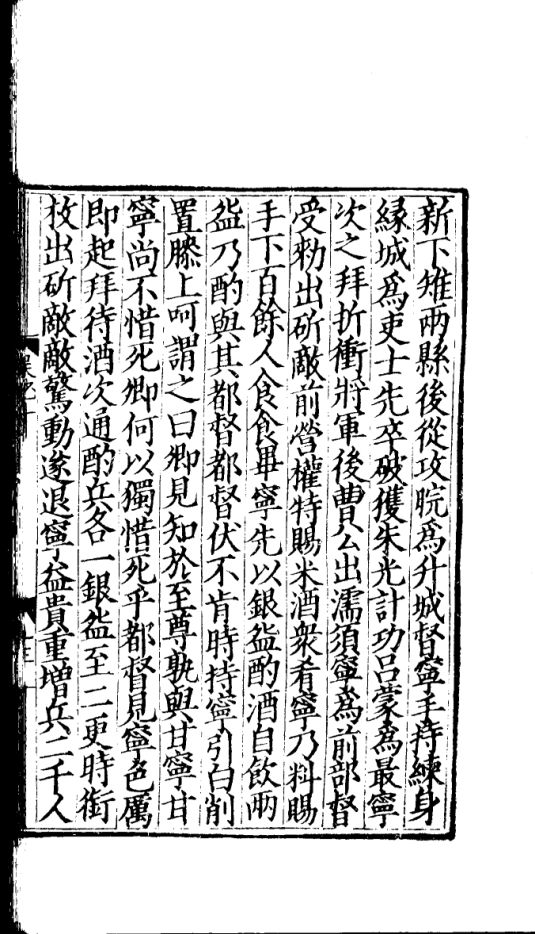 新下雉兩縣後從攻皖爲升城督寧手持練身
緣城爲吏士先卒破獲朱光計功呂蒙爲最寧
次之拜折衝將軍後曹公出濡須寧爲前部督
受勑出斫敵前營權特賜米酒衆肴寧乃料賜
手下百餘人食食畢寧先以銀盌酌酒自飲兩
盌乃酌與其都督都督伏不肯時持寧引白削
置膝上呵謂之曰卿見知於至尊孰與甘寧甘
寧尚不惜死卿何以獨惜死乎都督見寧色厲
即起拜待酒次通酌兵各一銀盌至二更時銜
枚出斫敵敵驚動遂退寧益貴重增兵二千人